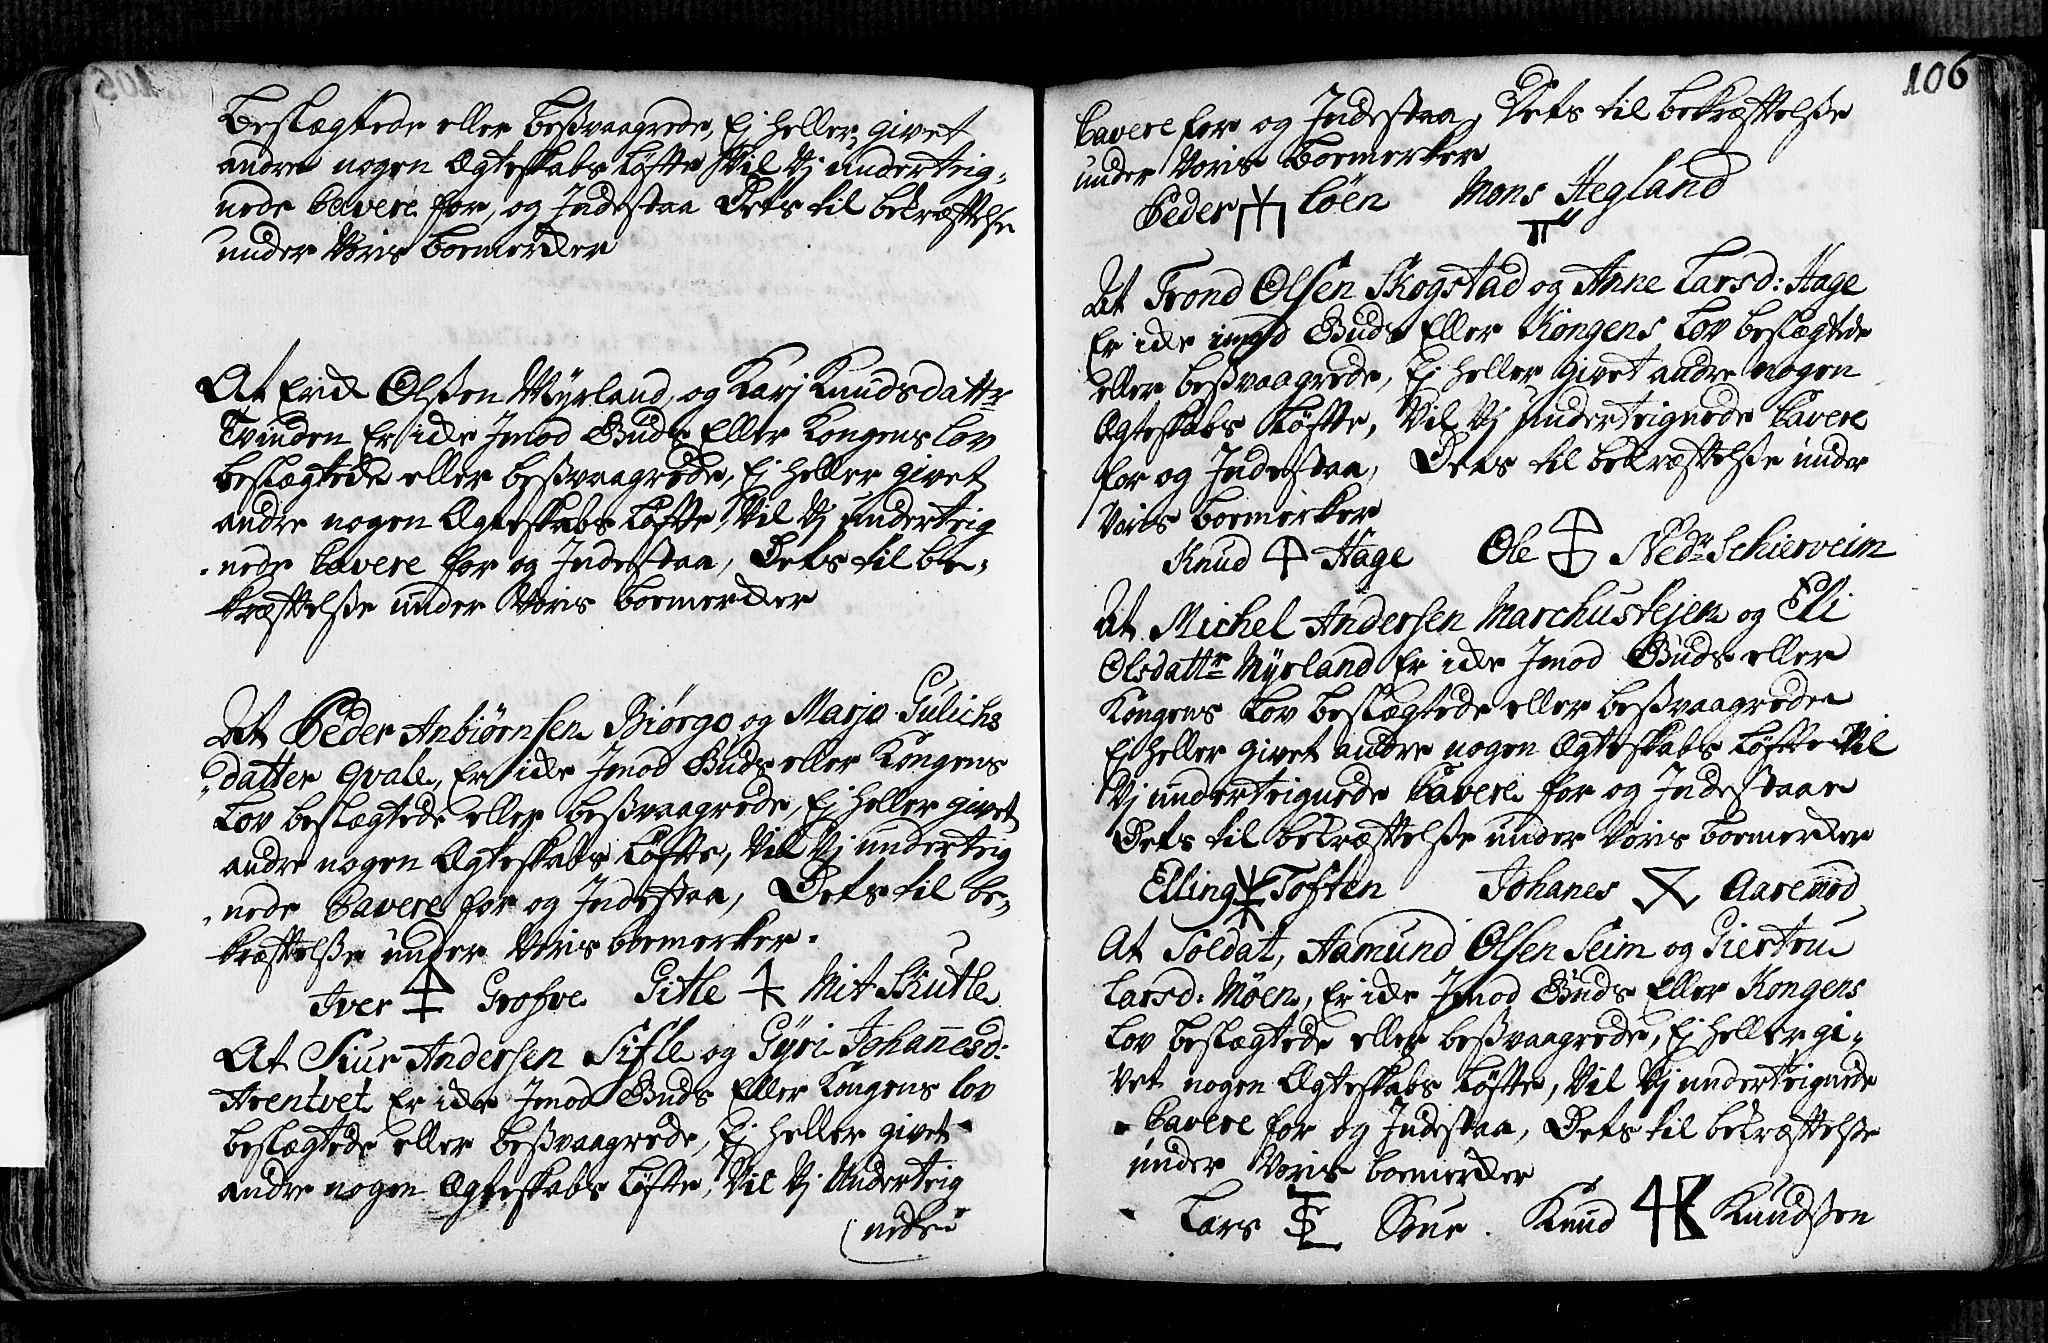 Beslægtede eller beßvaagrede, Ej heller givet
andre nogen Ægteskabs Løfte Vil Vj underteig-
nede Cavere for, og Jndestaa Dets til bekræftelße
under Voris boemercker
At Erick Olßen Myrland, og Karj Knudsdattr
Tvinden Er icke Jmod Guds Eller Kongens lov
beslægtede eller beßvaagrede, Ej heller givet
andre nogen Ægteskabs Løfte, Vil Vj underteig
nede Cavere for og Jndestaa, Dets til be-
kræftelße under Voris boemercker
At Peder Anbiørnsen Biørgo og Marjo Gulichs
datter Qvale, Er icke Jmod Guds eller Kongens
Lov beslægtede eller beßvaagrede, Ej heller givet
andre nogen Ægteskabs Løfte, Vil Vj underteig
nede Cavere for og Jndestaa, Dets til be-
kræftelße under Voris boemerker.
Iver Grofve Gitle Mit Skutle
At Siur Andersen Sifle og Gÿri Johanesd:
Arentvet Er icke Jmod Guds Eller Kongens lov
beslægtede eller beßvaagrede, Ej heller givet
andre nogen Ægteskabs Løfte, Vil Vj Underteig
nede
106
Cavere for og Jndestaa, Dets til bekræftelße
under Voris boemerker
Peder Løen Mons Hegland
At Trond Olsen Skogstad og Anne Larsd: Hage
Er icke imod Guds Eller Kongens Lov beslægtede
eller beßvaagrede, Ej heller givet andre nogen
Ægteskabs Løfte, Vil Vj underteignede Cavere
for og Jndestaa, Dets til bekræftelße under
Voris boemerker
Knud Hage Ole Nedr Schierveim
At Michel Andersen Marchustejen og Eli
Olsdattr Mÿrland Er icke Jmod Guds eller
Kongens Lov beslægtede eller beßvaagrede
Ej heller givet andre nogen Ægteskabs Løfte Vil
Vj underteignede Cavere for og Jndestaa
Dets til bekræftelße under Voris boemercker
Elling Toften Johanes Aaremod
At Soldat, Aamund Olsen Seim og Giertru
Larsd: Møen, Er icke Jmod Guds Eller Kongens
Lov beslægtede eller beßvaagrede, Ej heller gi-
vet nogen Ægteskabs Løfte, Vil Vj underteignede
Cavere for og Jndestaa, Dets til bekræftelße
under Voris boemercker
Lars Søue. Knud Knudßen